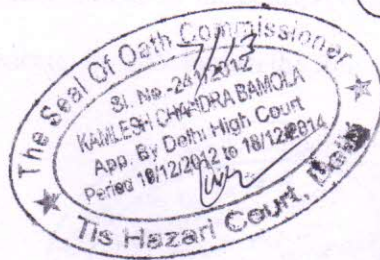 The Seal Of Oath Commissioner
7/13
Sl. No.-24/2012
KAMLESH CHANDRA BAMOLA
App. By Delhi High Court
Period 18/12/2012 to 18/12/2014
Tis Hazari Court, Delhi